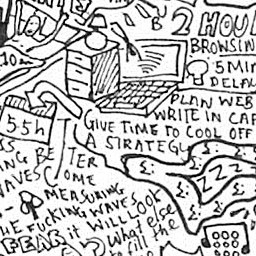 2 HOU
BROWSIN
5 MIN
DELA
10am
PLAN WEB
WRITE IN CAF
55h
GIVE TIME TO COOL OFF
A STRATEGU
ING BE
WAVES
TER
OME
MEASURING
FUCKING WAVES
FEAR
it WILL LOOK
What else
to fill the
ZZZ
£ £ £ £ £